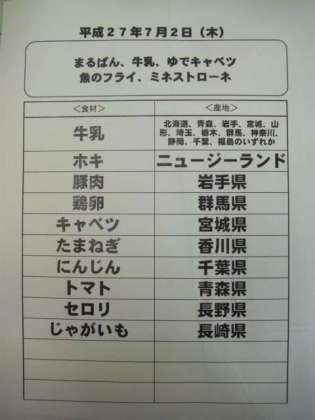 平成27年7月2日（木）
まるぱん、牛乳、ゆでキャベツ
魚のフライ、ミネストローネ
＜食材＞ ＜産地＞
牛乳 北海道、青森、岩手、宮城、山
形、埼玉、栃木、群馬、神奈川、
静岡、千葉、福島のいずれか
ホキ ニュージーランド
豚肉 岩手県
鶏卵 群馬県
キャベツ 宮城県
たまねぎ 香川県
にんじん 千葉県
トマト 青森県
セロリ 長野県
じゃがいも 長崎県